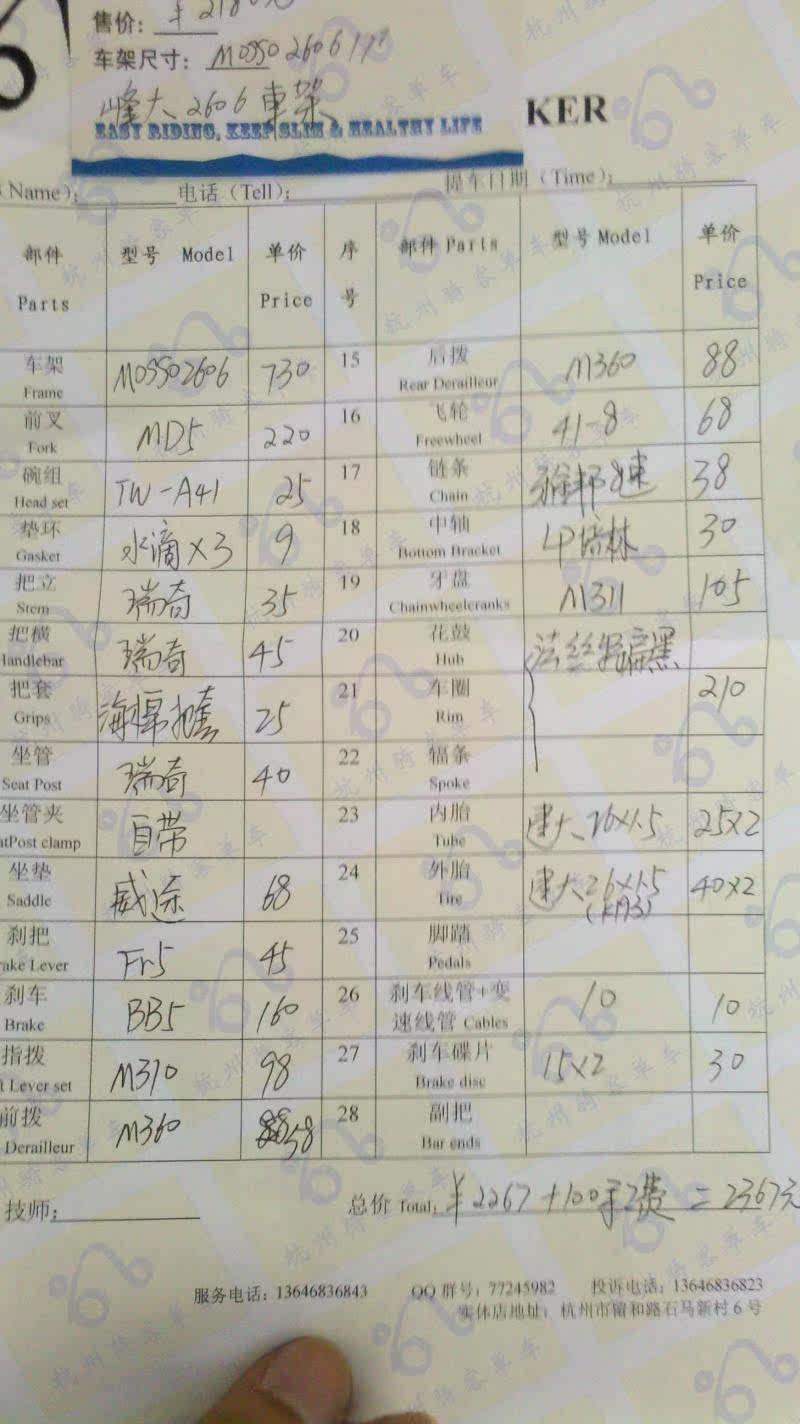 售价: ¥2180元
车架尺寸: M05502606
峰大2606車架
EASY RIDING, KEEP SLIM & HEALTHY LIFE
KER
Name): 电话(Tell): 提车日期(Time):
部件 Parts 型号 Model 单价 Price 序号 部件 Parts 型号 Model 单价 Price
车架 Frame M05502606 730 15 后拨 Rear Derailleur M360 88
前叉 Fork MD5 220 16 飞轮 Freewheel 41-8 68
碗组 Head set TW-A41 25 17 链条 Chain 8速 38
垫环 Gasket 水滴×3 9 18 中轴 Bottom Bracket 30
把立 Stem 瑞奇 35 19 牙盘 Chainwheelcranks M311 105
把横 Handlebar 瑞奇 45 20 花鼓 Hub 法丝 扁黑
把套 Grips 海棉把套 25 21 车圈 Rim 210
坐管 Seat Post 瑞奇 40 22 辐条 Spoke
坐管夹 atPost clamp 自带 23 内胎 Tube 建大26×1.5 25×2
坐垫 Saddle 威途 68 24 外胎 Tire 建大26×1.5 40×2
刹把 ake Lever Fr5 45 25 脚踏 Pedals
刹车 Brake BB5 160 26 刹车线管+变速线管 Cables 10 10
指拨 t Lever set M310 98 27 刹车碟片 Brake disc 15×2 30
前拨 Derailleur M360 58 28 副把 Bar ends
技师: 总价 Total: ¥2267+100手工费=2367元
服务电话:13646836843 QQ群号:77245982 投诉电话:13646836823
实体店地址: 杭州市留和路石马新村6号